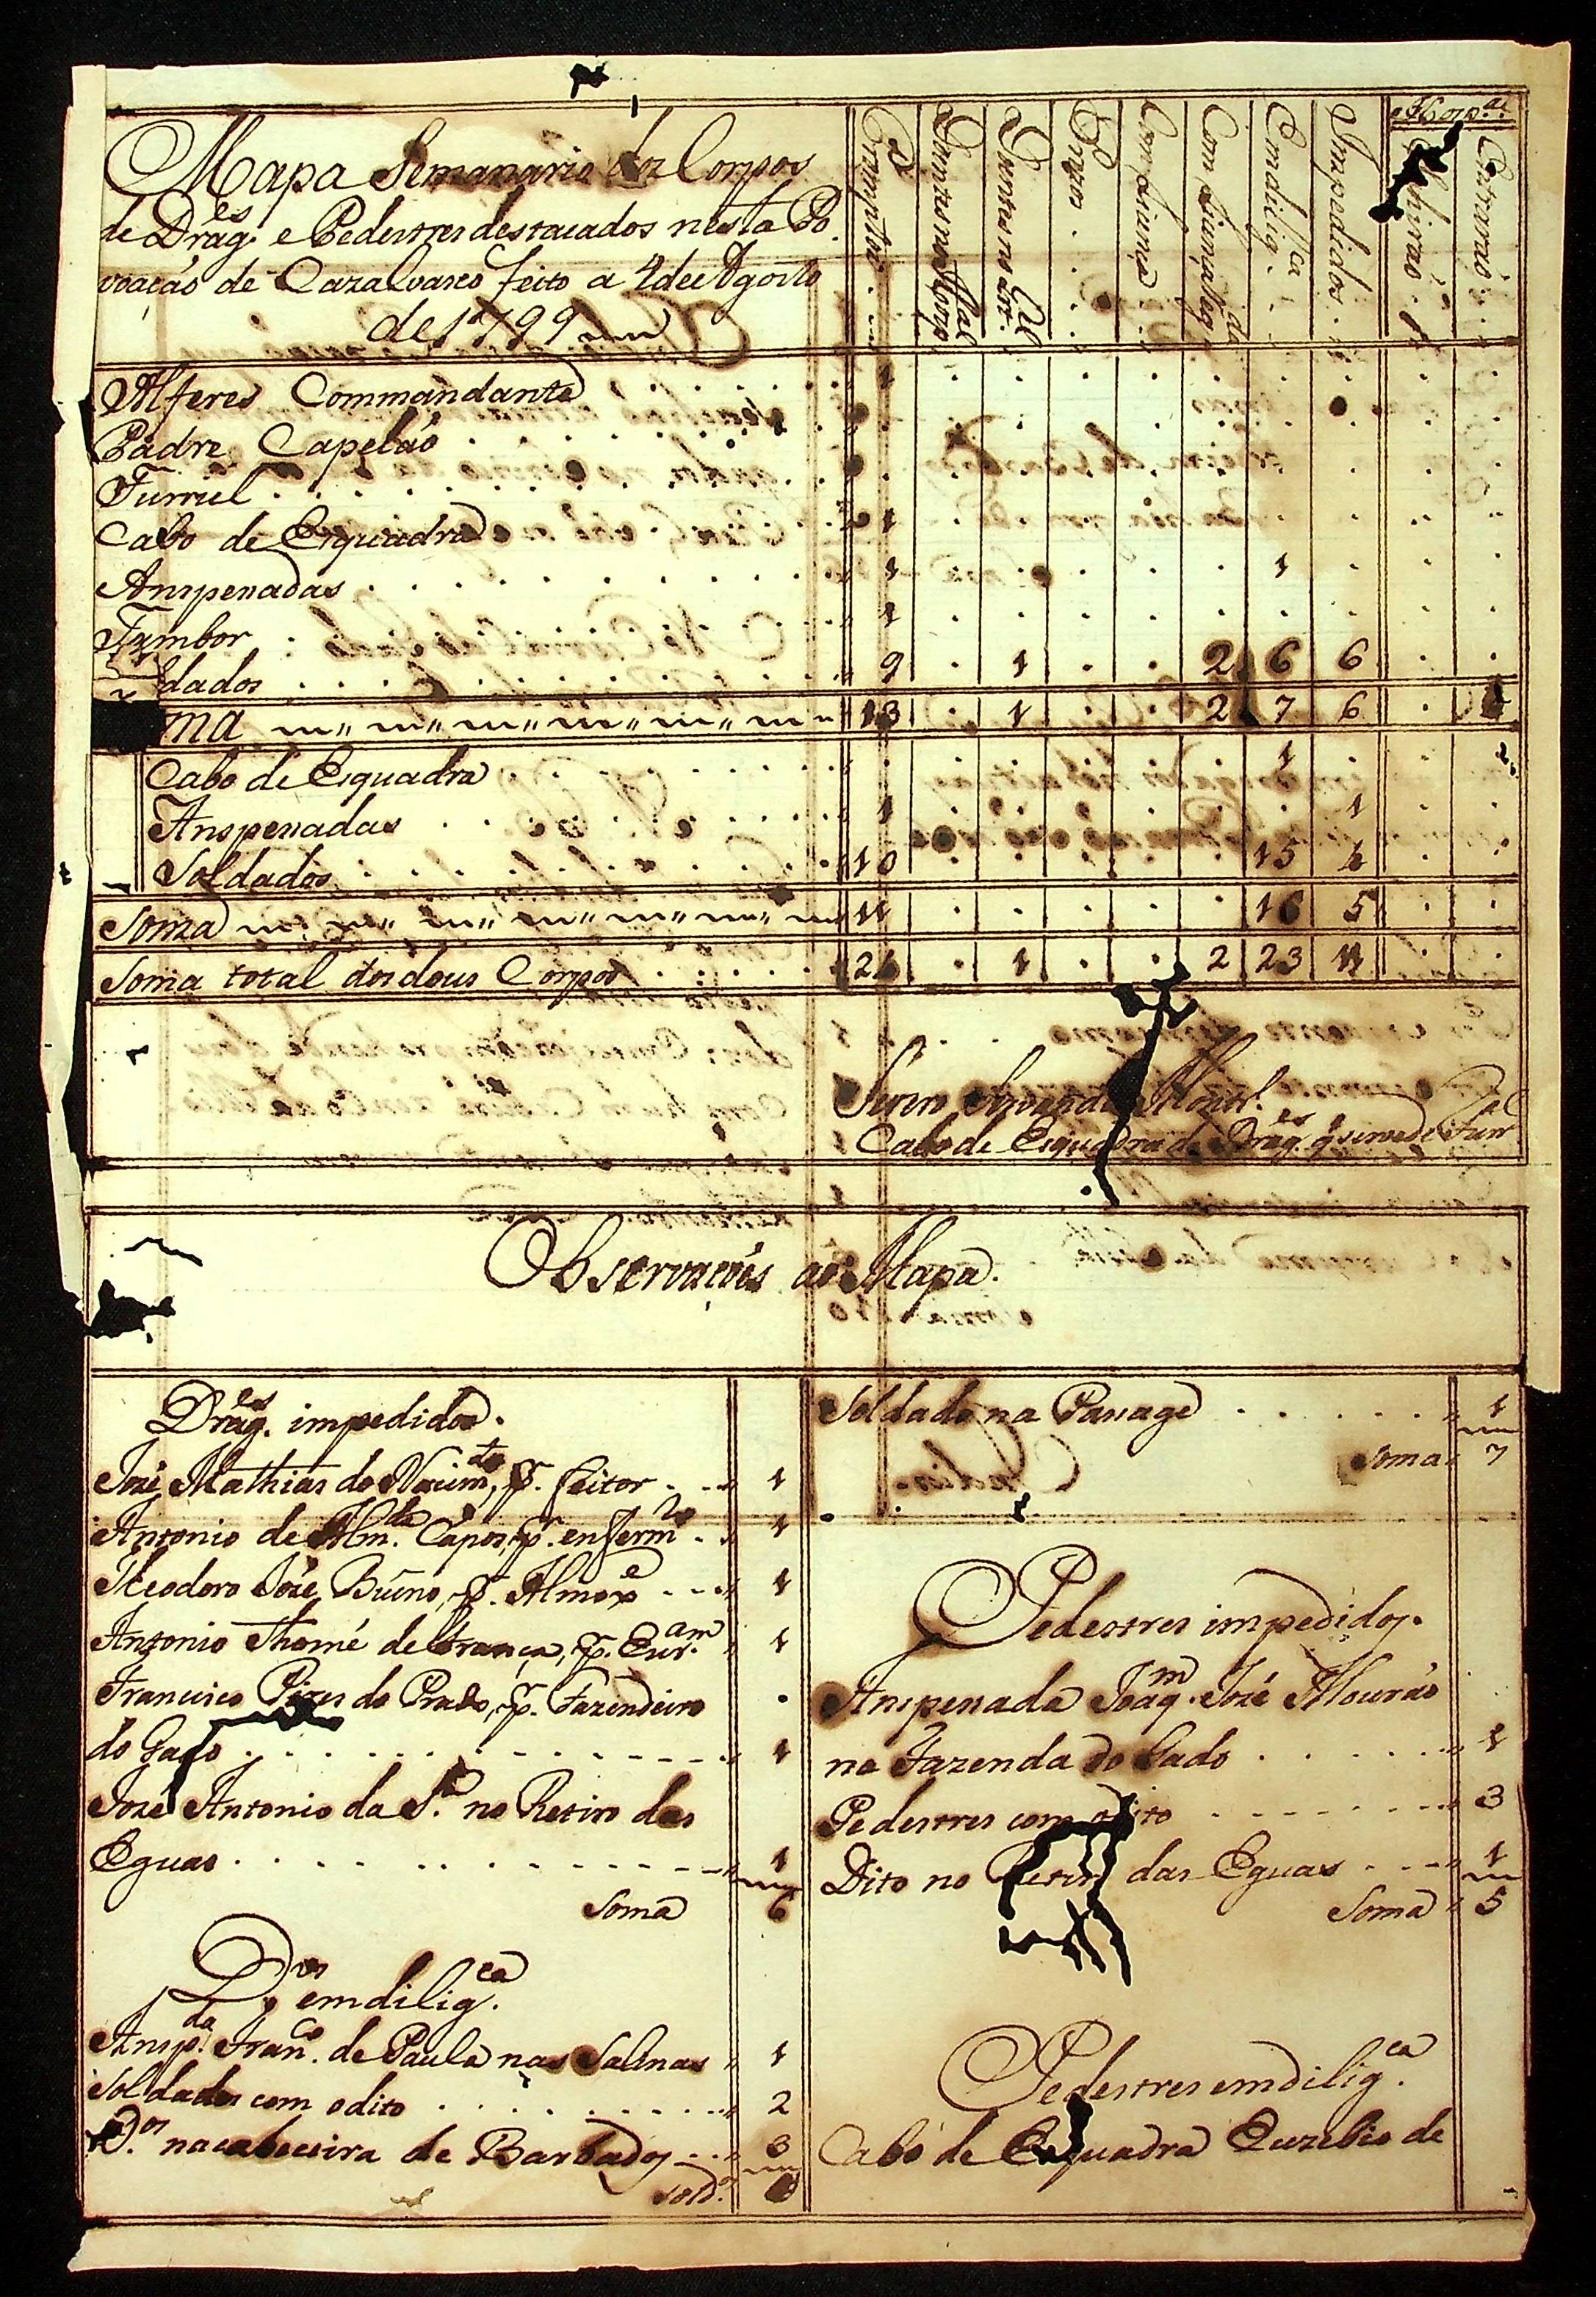 Mapa Semanario dos Corpos
de Drag.es e Pedestres destacados nesta Po
voaçaõ de Cazalvasco feito a 4 de Agosto
de 1799
Promptos
Doentes no Hospal
Doentes no Quel
Prezos
Com Licença
Com Licença
Em dilig.ca
Impedidos
Hosp.al
Sahiraõ
Entraraõ
Alferes Commandante 1
Padre Capelaõ
Furriel
Cabo de Esquadra 1
Anspenadas 1 1
Tambor 1
dados 9 1 2 6 6
ma 13 1 2 7 6
Cabo de Esquadra 1
Anspenadas 1 1
Soldados 10 15 4
Soma 11 16 5
Soma total dos dous Corpos 24 1 2 23 11
Cabo de Esquadra de Drag.es q serve de Furr.al
Observaçoẽs ao Mapa.
Drag.es impedidos.
Jozé Mathias do Nacim.to, p. feitor 1
Antonio de Alm.da Cãpos, p. enferm.ro 1
Theodoro Jozé Bueno, p. Almox.e 1
Antonio Thomé de frança, p. Cur.am 1
Francisco Pires do Prado, p. Fazendeiro
do Gado 1
Jozé Antonio da S.a no Retiro das
Eguas 1
Soma 6
D.os em dilig.ca
Ansp.da Fran.co de Paula nas Salinas 1
Soldados com o dito 2
D.os na cabeceira de Barbados 3
Soldado na Passage 1
Soma 7
Pedestres impedidos.
Anspenada Joaq.m Jozé Mouraõ
na Fazenda do Gado 1
Pedestres com o dito 3
Dito no Retiro das Eguas 1
Soma 5
Pedestres em dilig.ca
Cabo de Esquadra Euzebio de